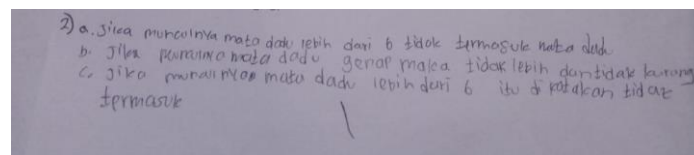 2) a. Jika munculnya mata dadu lebih dari 6 tidak termasuk mata dadu
b. Jika munculnya mata dadu genap maka tidak lebih dan tidak kurang
c. Jika munculnya mata dadu lebih dari 6 itu di katakan tidak
termasuk